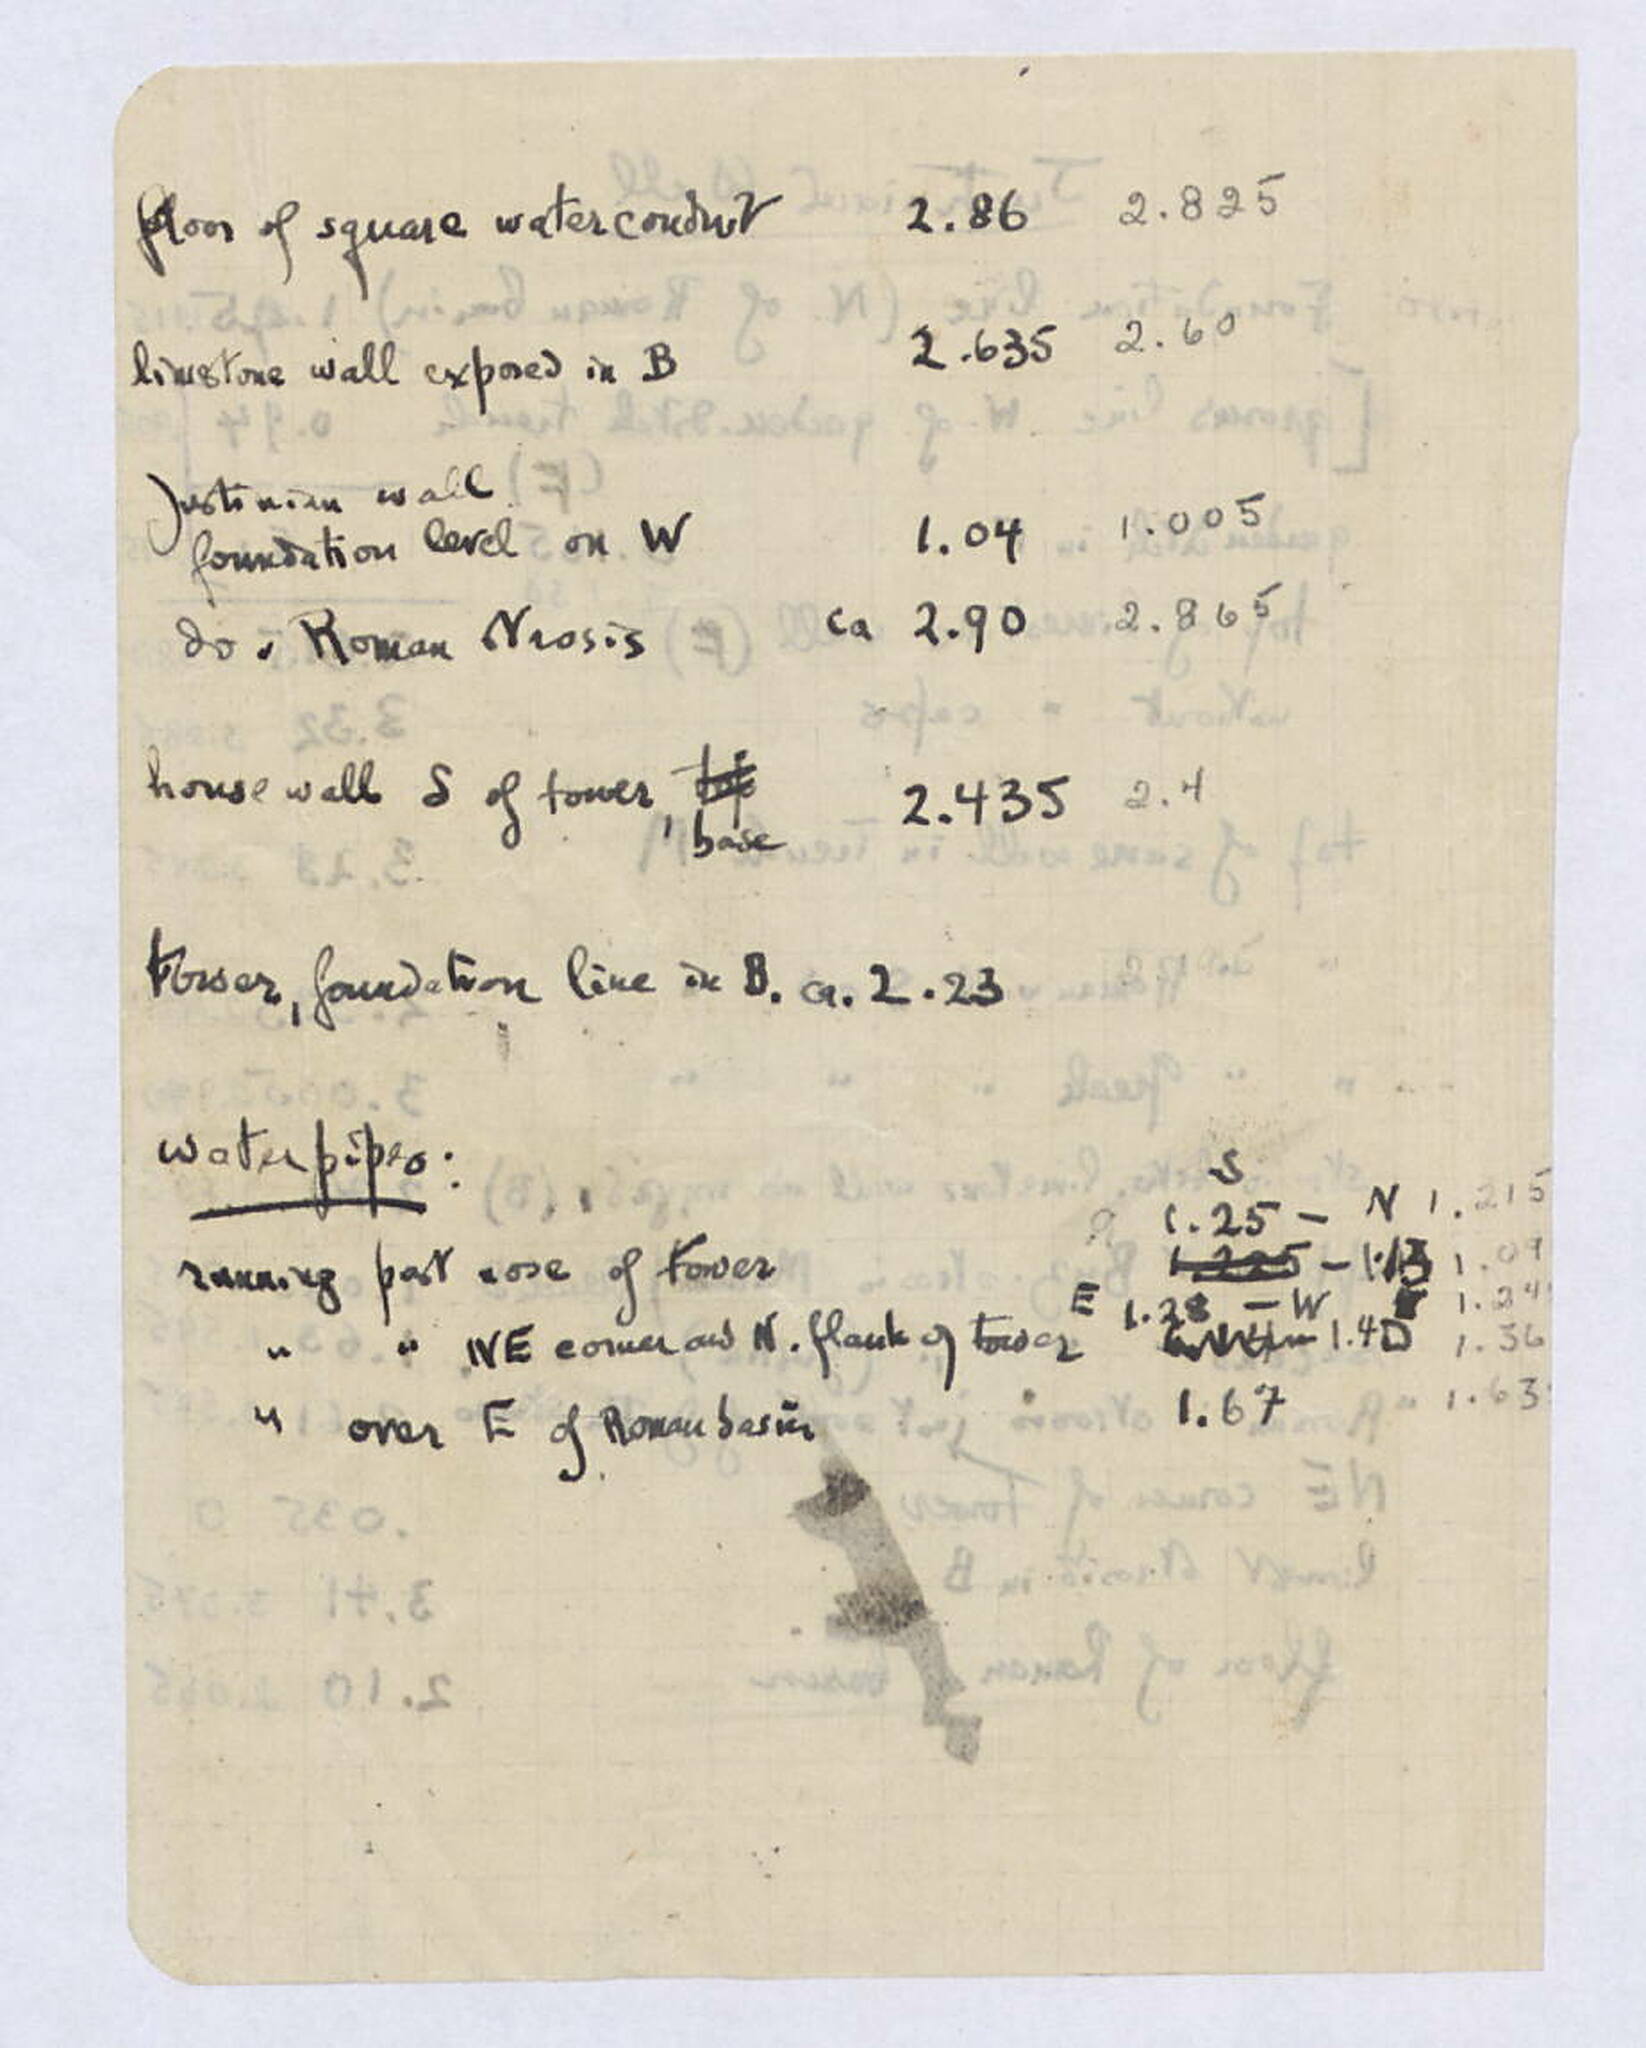 floor of square waterconduit 2.86 2.825
limestone wall exposed in B 2.635 2.60
Justinian wall
foundation level on W 1.04 1.005
do. Roman ca 2.90 2.865
house wall S of tower, top 2.435 2.4
base
tower, foundation line in B. ca. 2.23
waterpipes:
S
1.25 - N 1.215
running past nose of tower 1.225 - 1.13 1.09
E 1.28 - W 1.24
" " NE corner and N. flank of tower 1.40 1.36
" over E of Roman basin 1.67 1.63